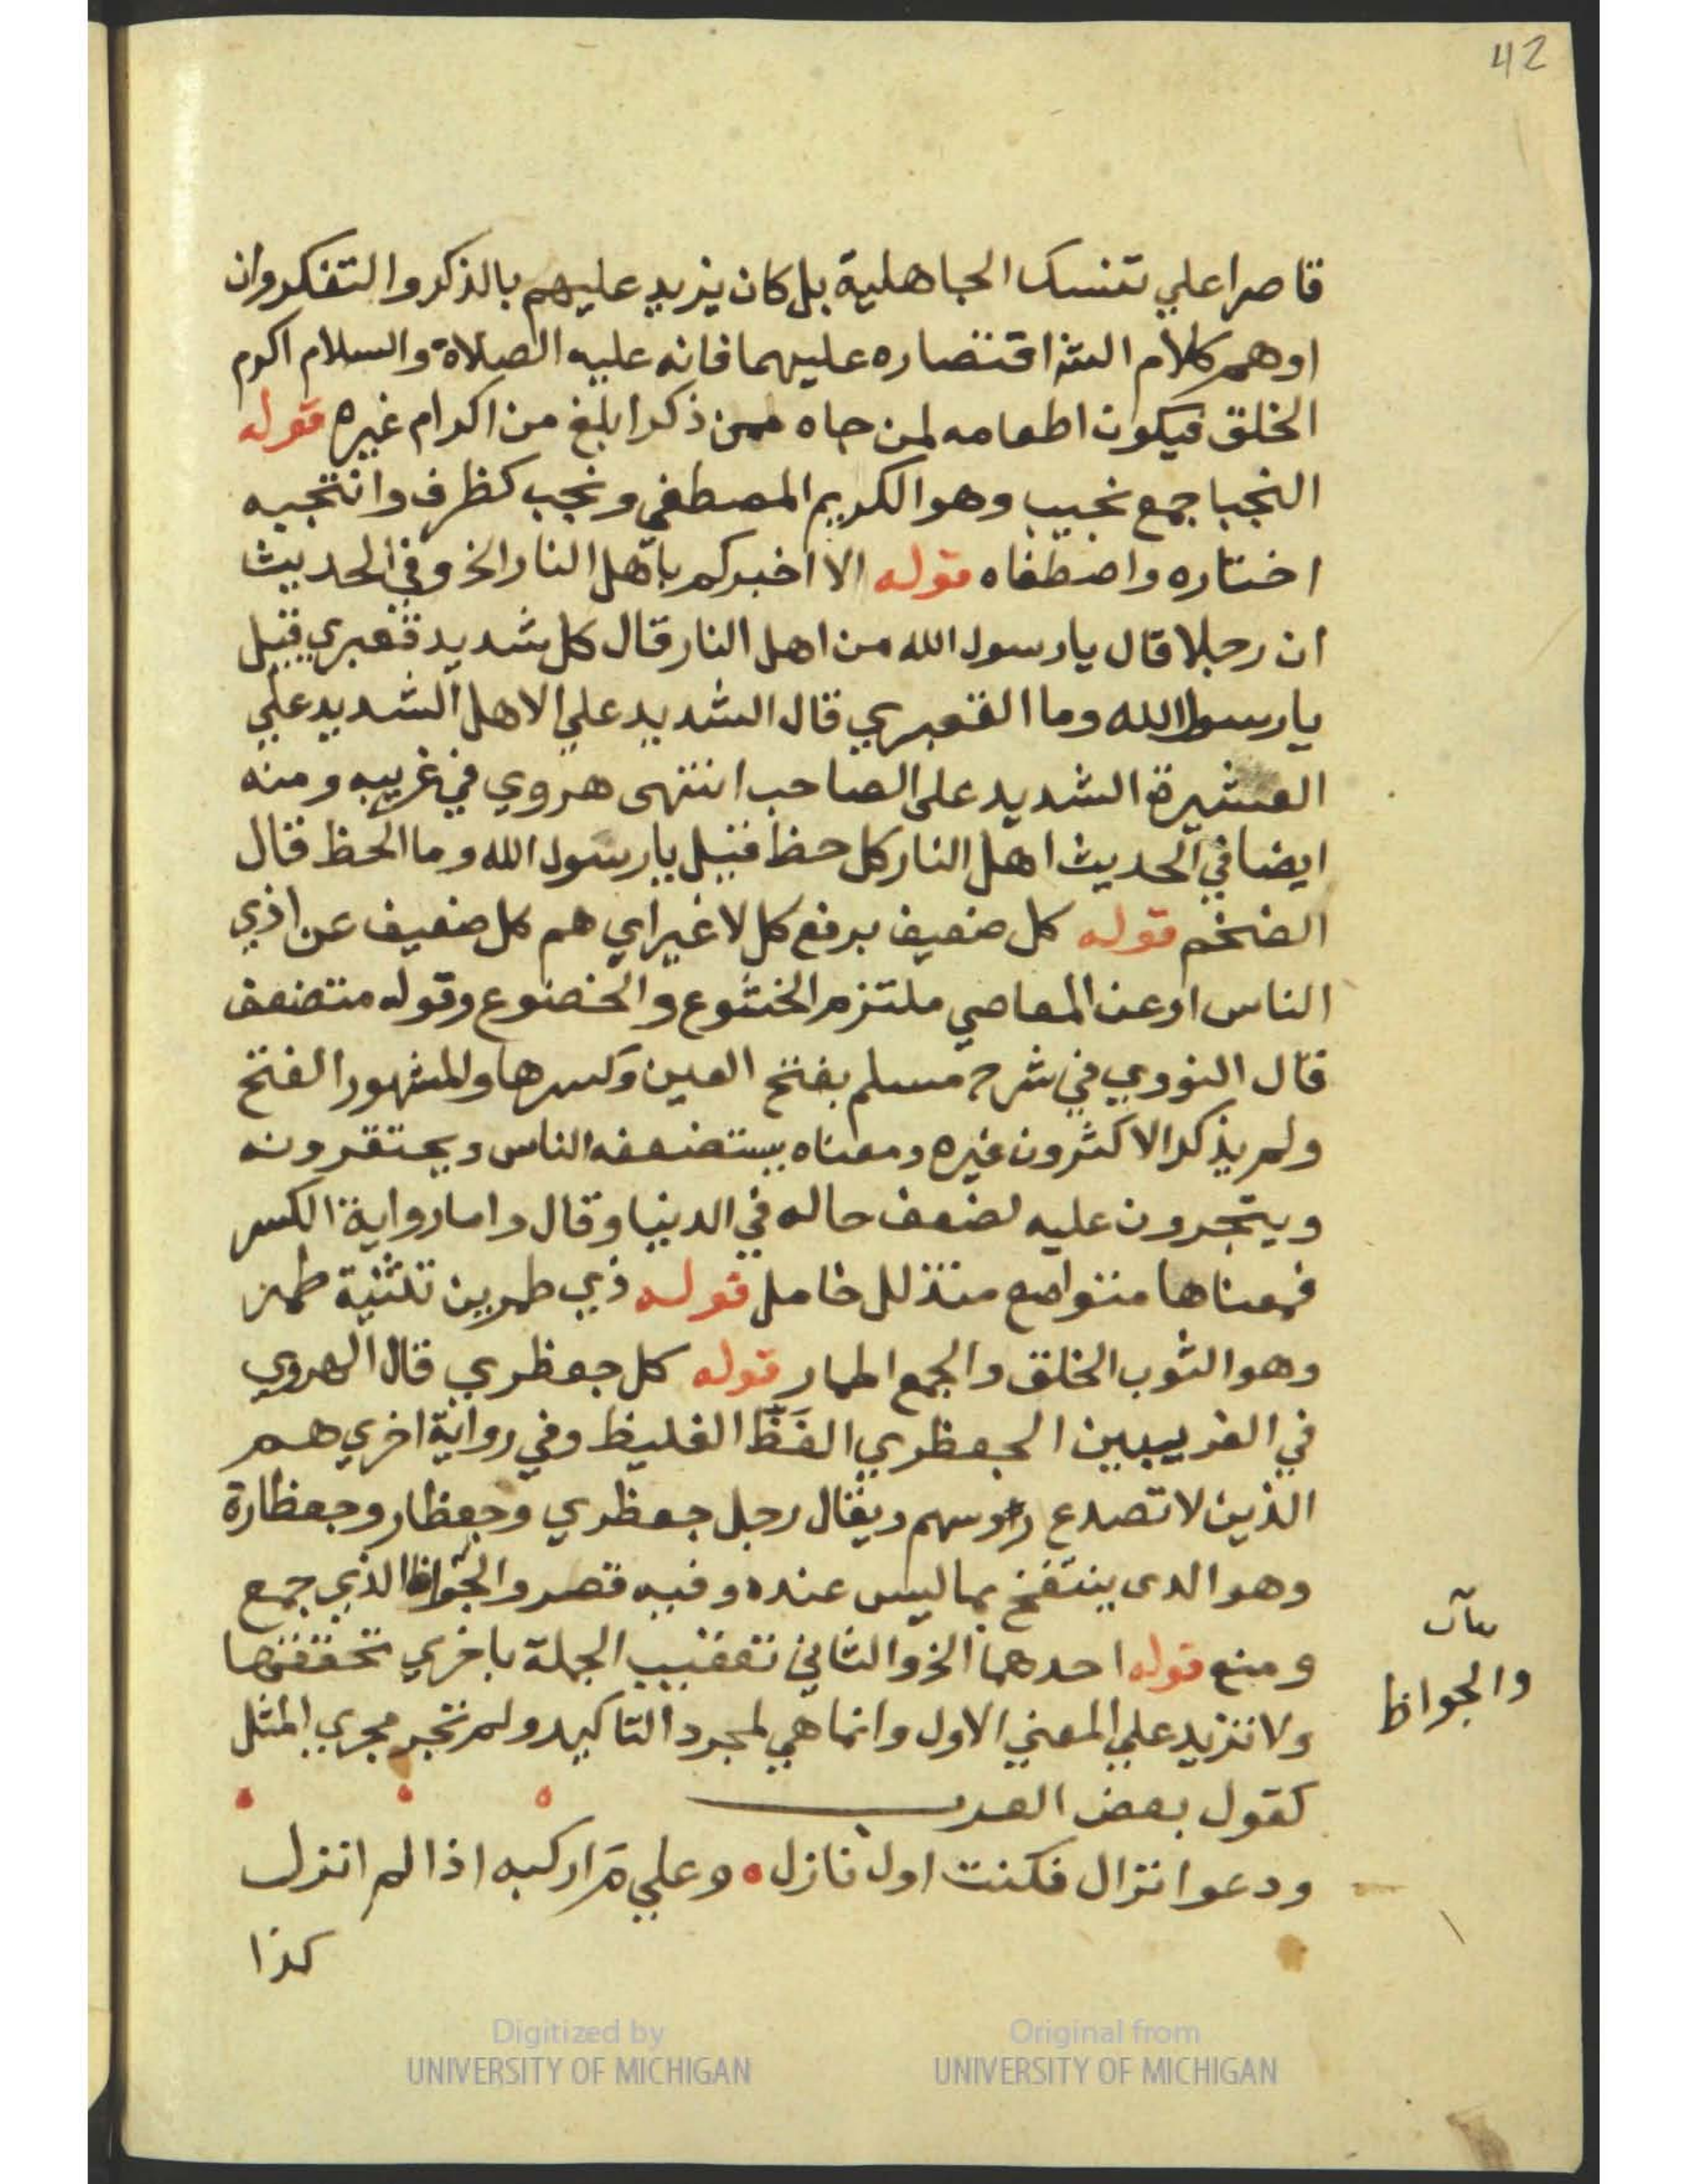 42
قاصرا علي تنسك الجاهلية بل كان يزيد عليهم بالذكر والتفكر وان
اوهم كلام الش اقتصاره عليهما فانه عليه الصلاة والسلام اكرم
الخلق فيكون اطعامه لمن جاه ممن ذكر ابلغ من اكرام غيره قوله
النجبا جمع نجيب وهو الكريم المصطفي ونجب كظرف وانتجبه
اختاره واصطفاه قوله الا اخبركم باهل النار الخ وفي الحديث
ان رجلا قال يا رسول الله من اهل النار قال كل شديد قعبري قيل
يا رسول الله وما القعبري قال الشديد علي الاهل الشديد علي
العشيرة الشديد على الصاحب انتهى هروي في غريبه ومنه
ايضا في الحديث اهل النار كل حظ فقيل يا رسول الله وما الحظ قال
الضخم قوله كل ضعيف برفع كل لا غير اي هم كل ضعيف عن اذي
الناس او عن المعاصي ملتزم الخشوع والخضوع وقوله متضعف
قال النووي في شرح مسلم بفتح العين وكسرها والمشهور الفتح
ولم يذكر الاكثرون غيره ومعناه يستضعفه الناس ويحتقرونه
ويتجرون عليه لضعف حاله في الدنيا وقال واما رواية الكسر
فمعناها متواضع متذلل خامل قوله ذي طمرين تثنية طمر
وهو الثوب الخلق والجمع اطمار قوله كل جعظري قال الهروي
في الغريبين الجعظري الفَظّ الغليظ وفي رواية اخري هم
الذين لا تصدع روسهم ويقال رجل جعظري وجعظار وجعظارة
وهو الدى ينتفخ بما ليس عنده وفيه قصر والجواظ الذي جمع
ومنع قوله احدهما الخ والثاني تعقيب الجملة باخري تحققها
ولا تزيد علي المعني الاول وانما هي لمجرد التاكيد ولم تجر مجري المثل
كقول بعض العرب
ودعوا نزال فكنت اول نازل وعلي مَ اركبه اذا لم انزل
كذا
بيان
والجواظ
Digitized by
UNIVERSITY OF MICHIGAN
Original from
UNIVERSITY OF MICHIGAN